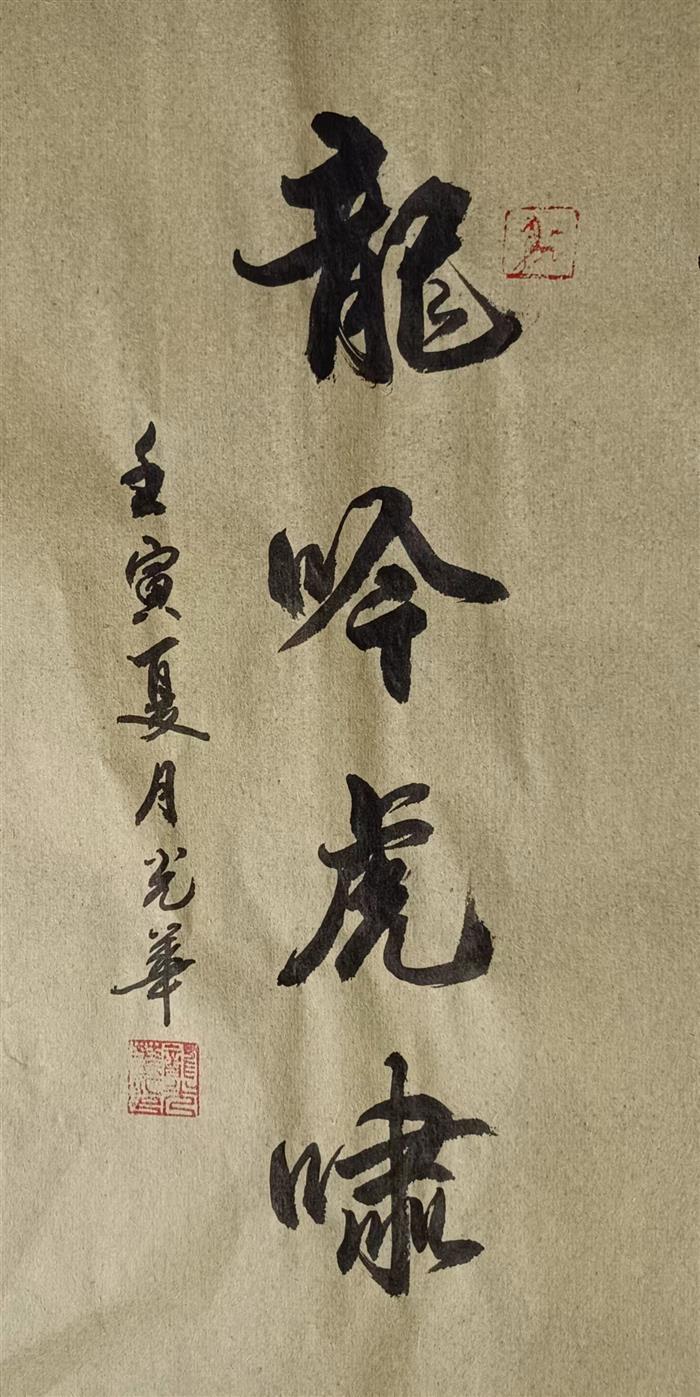 龍吟虎嘯
壬寅夏月光華